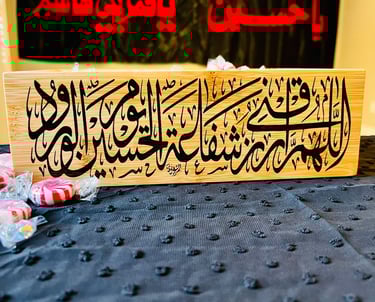 يا قمر بني هاشم
يا حسين
اللهم ارزقني شفاعة الحسين يوم الورود